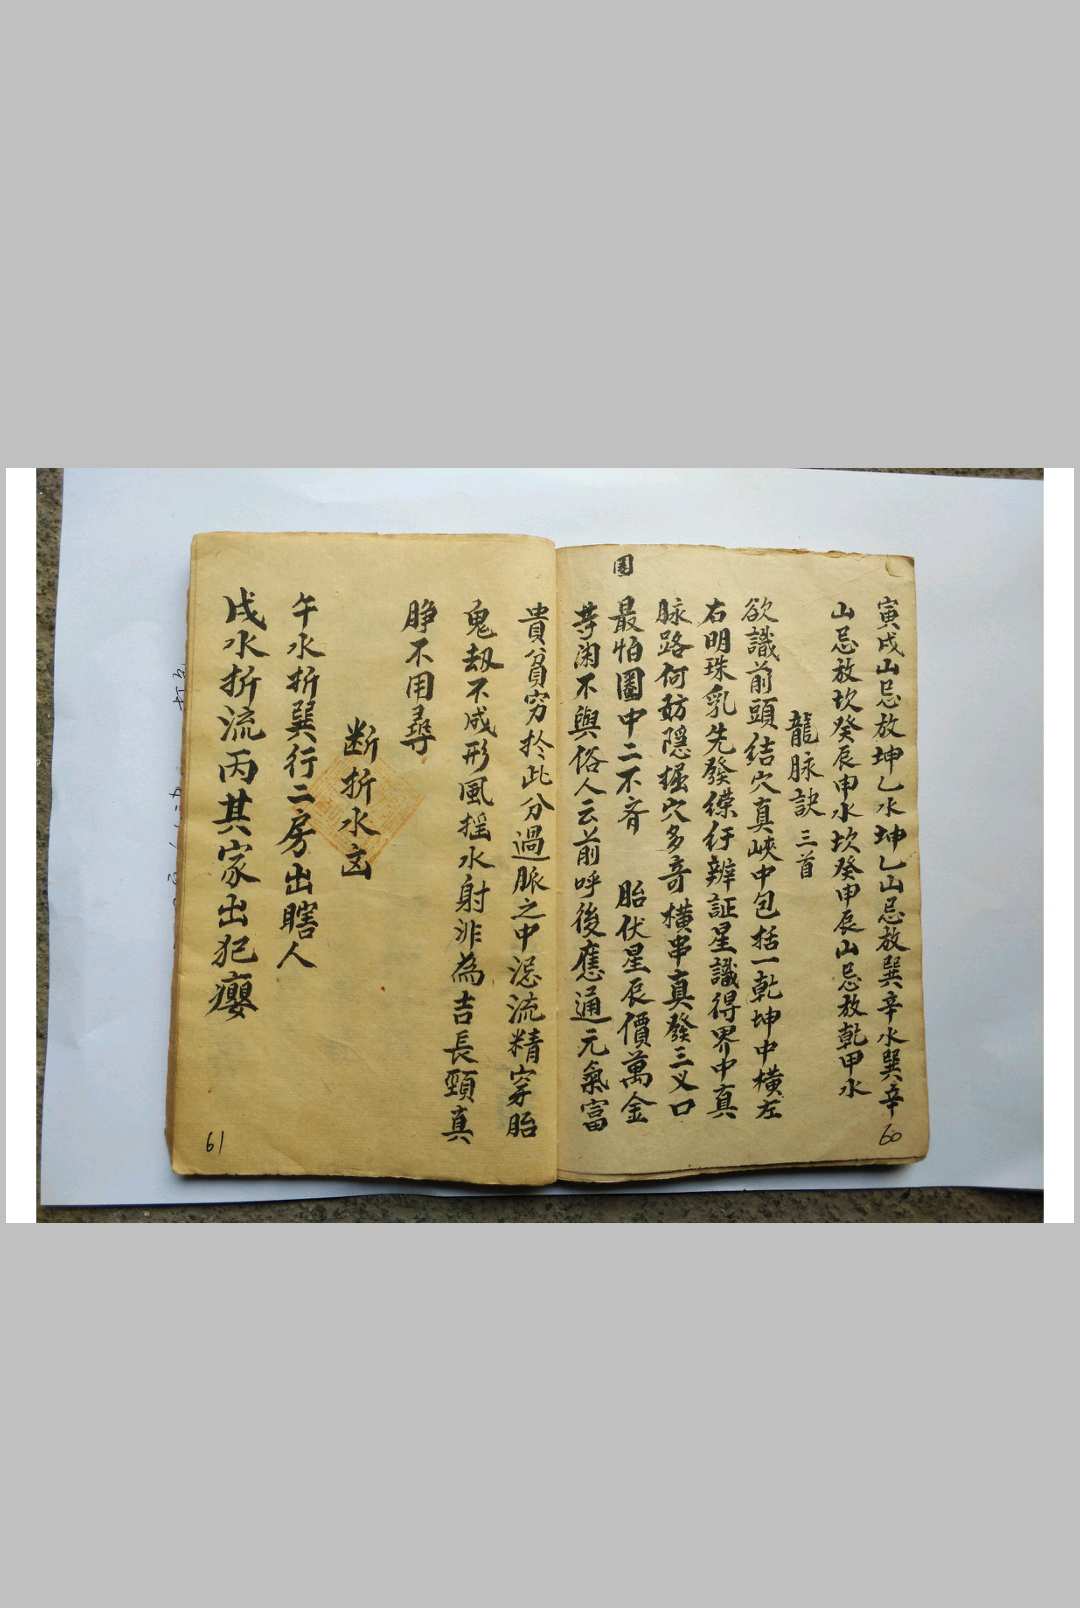 寅戌山忌放坤乙水坤乙山忌放巽辛水巽辛
山忌放坎癸辰申水坎癸申辰山忌放乾甲水
龍脉訣 三首
欲識前頭結穴真峽中包括一乾坤中橫左
右明珠乳先發縲紆辨証星識得界中真
脉路何妨隱掘穴多奇橫串真發三叉口
最怕圖中二不齐 胎伏星辰價萬金
等閑不與俗人云前呼後應通元氣富
60
貴貧穷扵此分過脈之中忌流精穿胎
鬼刼不成形風摇水射非為吉長頸真
睁不用尋
断折水凶
午水折巽行二房出瞎人
戌水折流丙其家出犯癭
61